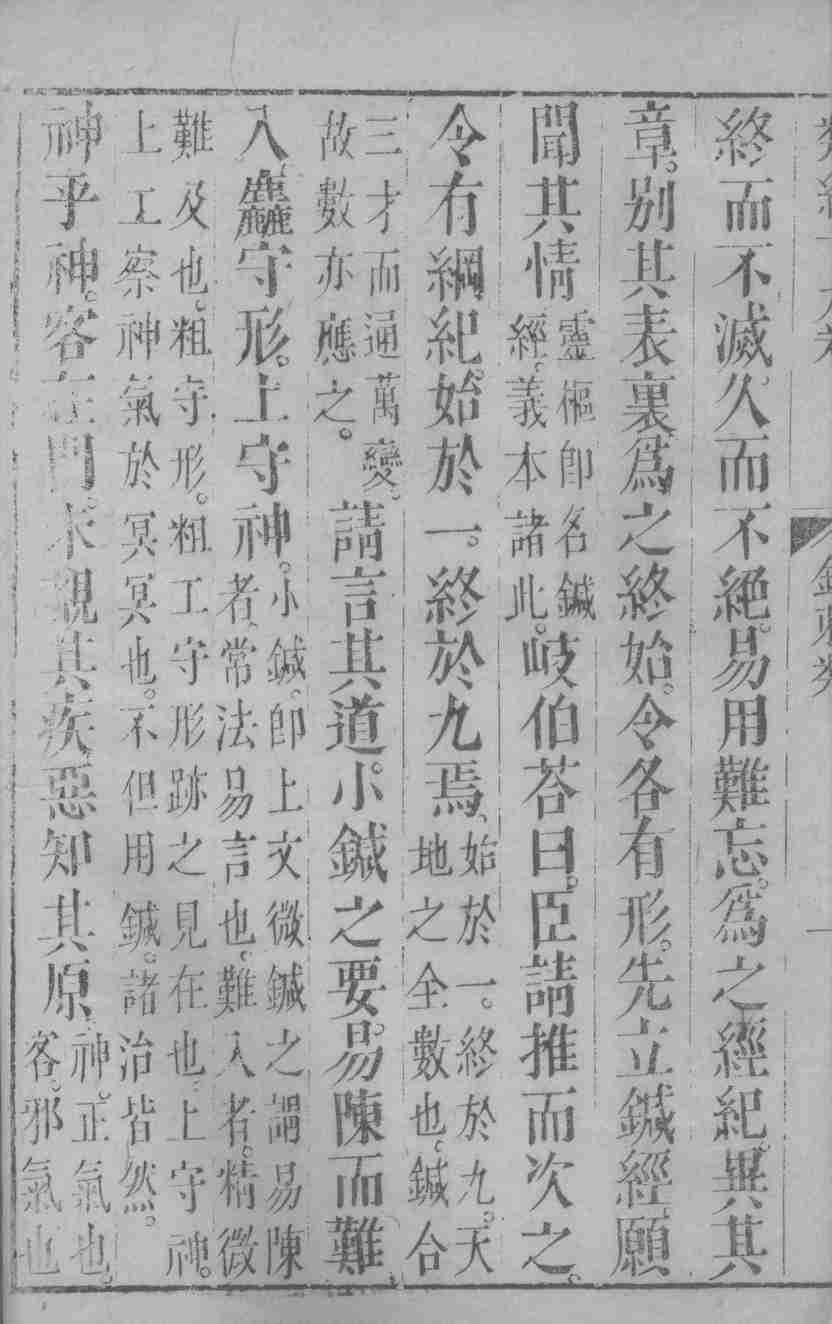 終而不滅。久而不絕。易用難忘。爲之經紀。異其
章。别其表裏。爲之終始。令各有形。先立鍼經。願
聞其情
靈樞卽名鍼
經。義本諸此。
岐伯荅曰。臣請推而次之。
令有綱紀。始於一。終於九焉。
始於一。終於九。天
地之全數也。鍼合
三才而通萬變。
故數亦應之。
請言其道。小鍼之要。易陳而難
入。麤守形。上守神。
小鍼。卽上文微鍼之謂。易陳
者。常法易言也。難入者。精微
難及也。粗守形。粗工守形跡之見在也。上守神。
上工察神氣於冥冥也。不但用鍼。諸治皆然。
神乎神。客在門。未覩其疾。惡知其原。
神。正氣也。
客。邪氣也